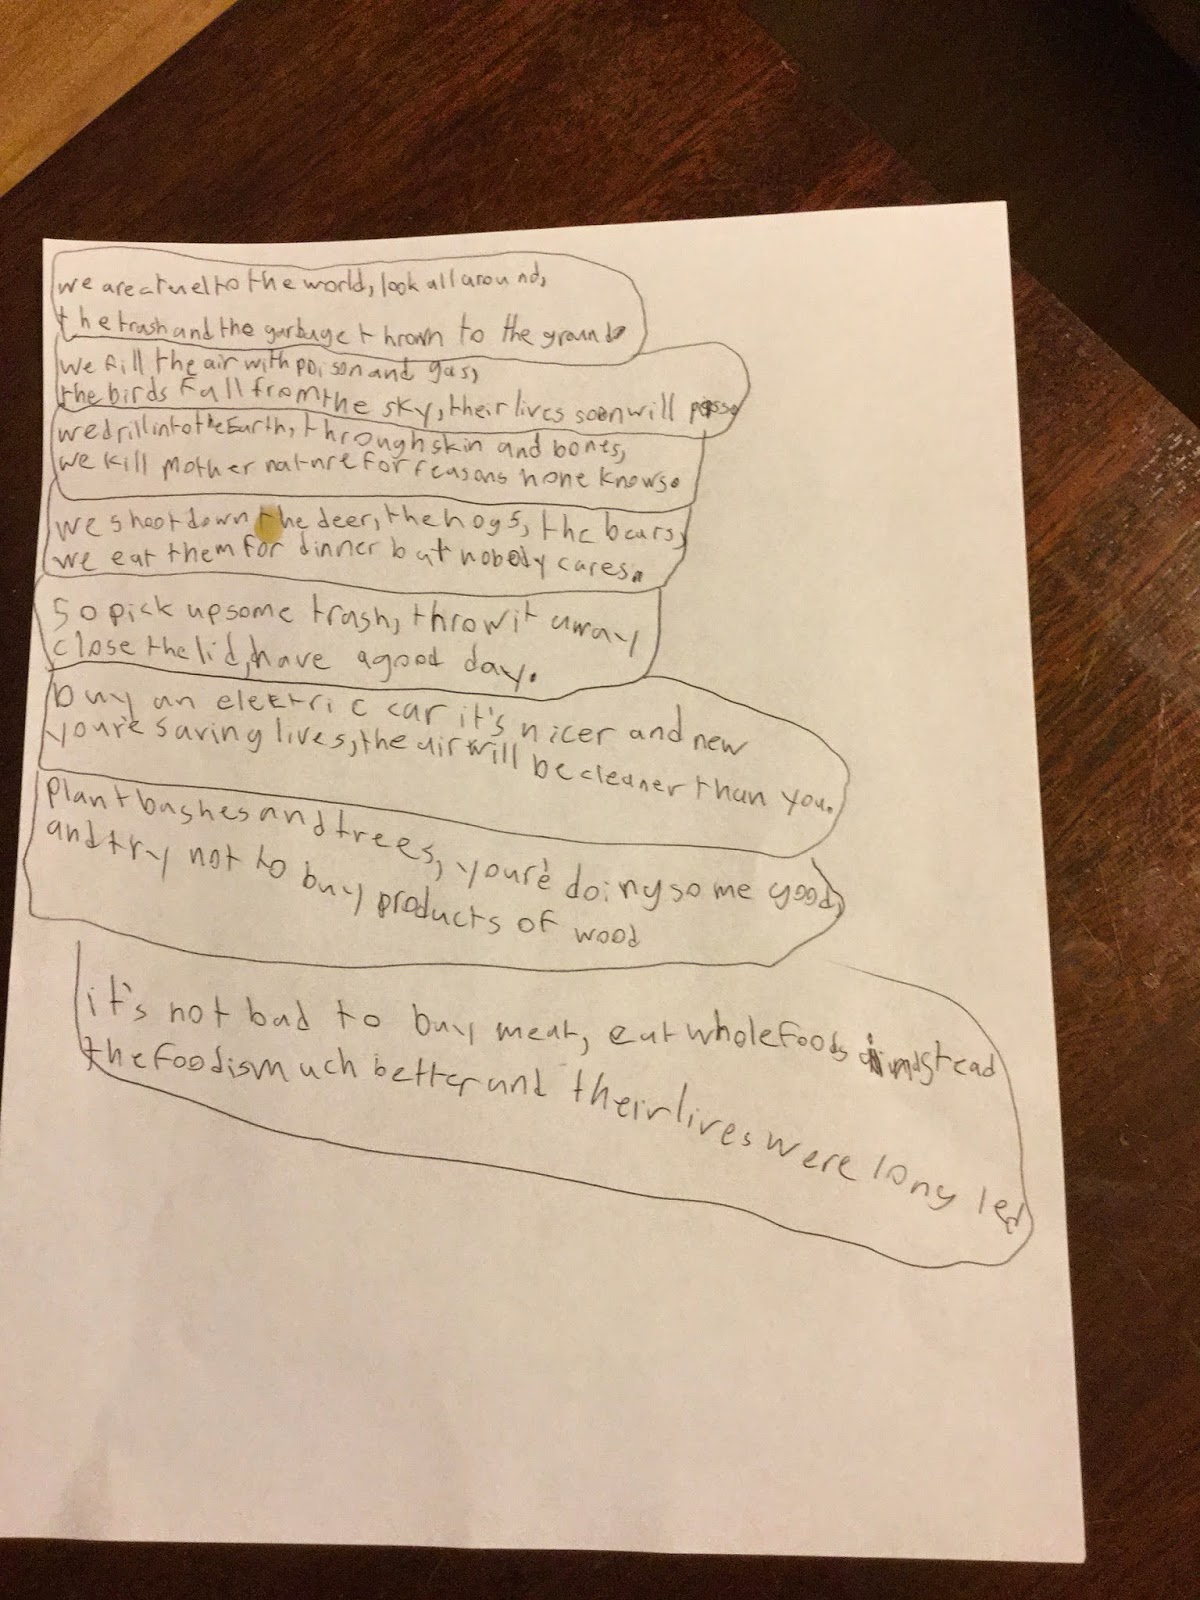 we are cruel to the world, look all around,
the trash and the garbage thrown to the ground
we fill the air with poison and gas,
the birds fall from the sky, their lives soon will pass.
we drill into the Earth, through skin and bones,
we kill mother nature for reasons none knows.
we shoot down the deer, the hogs, the bears,
we eat them for dinner but nobody cares.
so pick up some trash, throw it away
close the lid, have a good day.
buy an electric car it's nicer and new
you're saving lives, the air will be cleaner than you.
plant bushes and trees, you're doing some good,
and try not to buy products of wood
it's not bad to buy meat, eat whole foods instead
the food is much better and their lives were long led